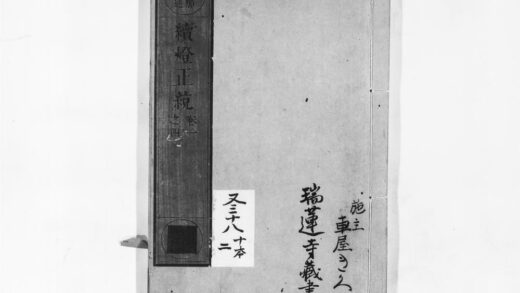 續燈正統
卷一
之四
施主
車屋きく
瑞蓮寺藏書
又三十八
十本
二